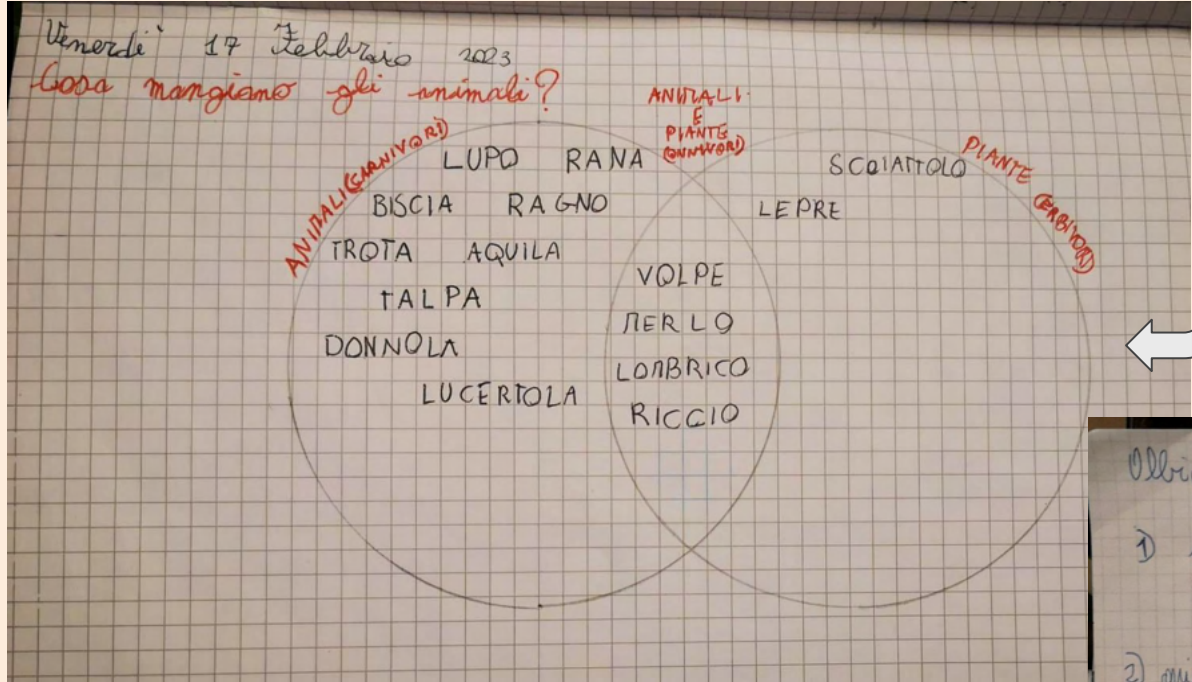 Venerdì 17 Febbraio 2023
Cosa mangiano gli animali?
ANIMALI (CARNIVORI)
ANIMALI
E
PIANTE
(ONNIVORI)
PIANTE (ERBIVORI)
LUPO RANA
BISCIA RAGNO
TROTA AQUILA
TALPA
DONNOLA
LUCERTOLA
VOLPE
MERLO
LOMBRICO
RICCIO
SCOIATTOLO
LEPRE
1)
2)